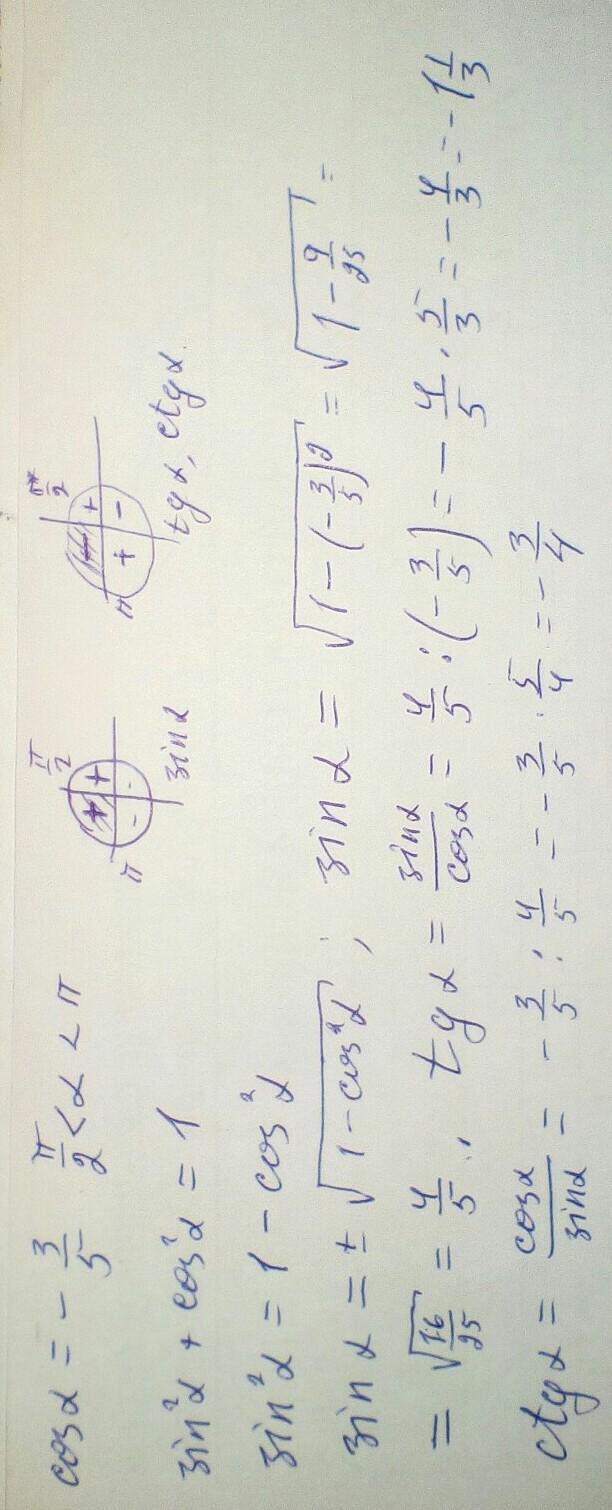 cos α = - 3/5   π/2 < α < π
π/2   π   + + - -   sin α
π/2   π   + + -   tg α, ctg α.
sin²α + cos²α = 1
sin²α = 1 - cos²α
sin α = ± √(1 - cos²α) ; sin α = √(1 - (-3/5)²) = √(1 - 9/25) =
= √(16/25) = 4/5 ; tg α = sin α / cos α = 4/5 : (-3/5) = - 4/5 · 5/3 = - 4/3 = - 1 1/3
ctg α = cos α / sin α = - 3/5 : 4/5 = - 3/5 · 5/4 = - 3/4